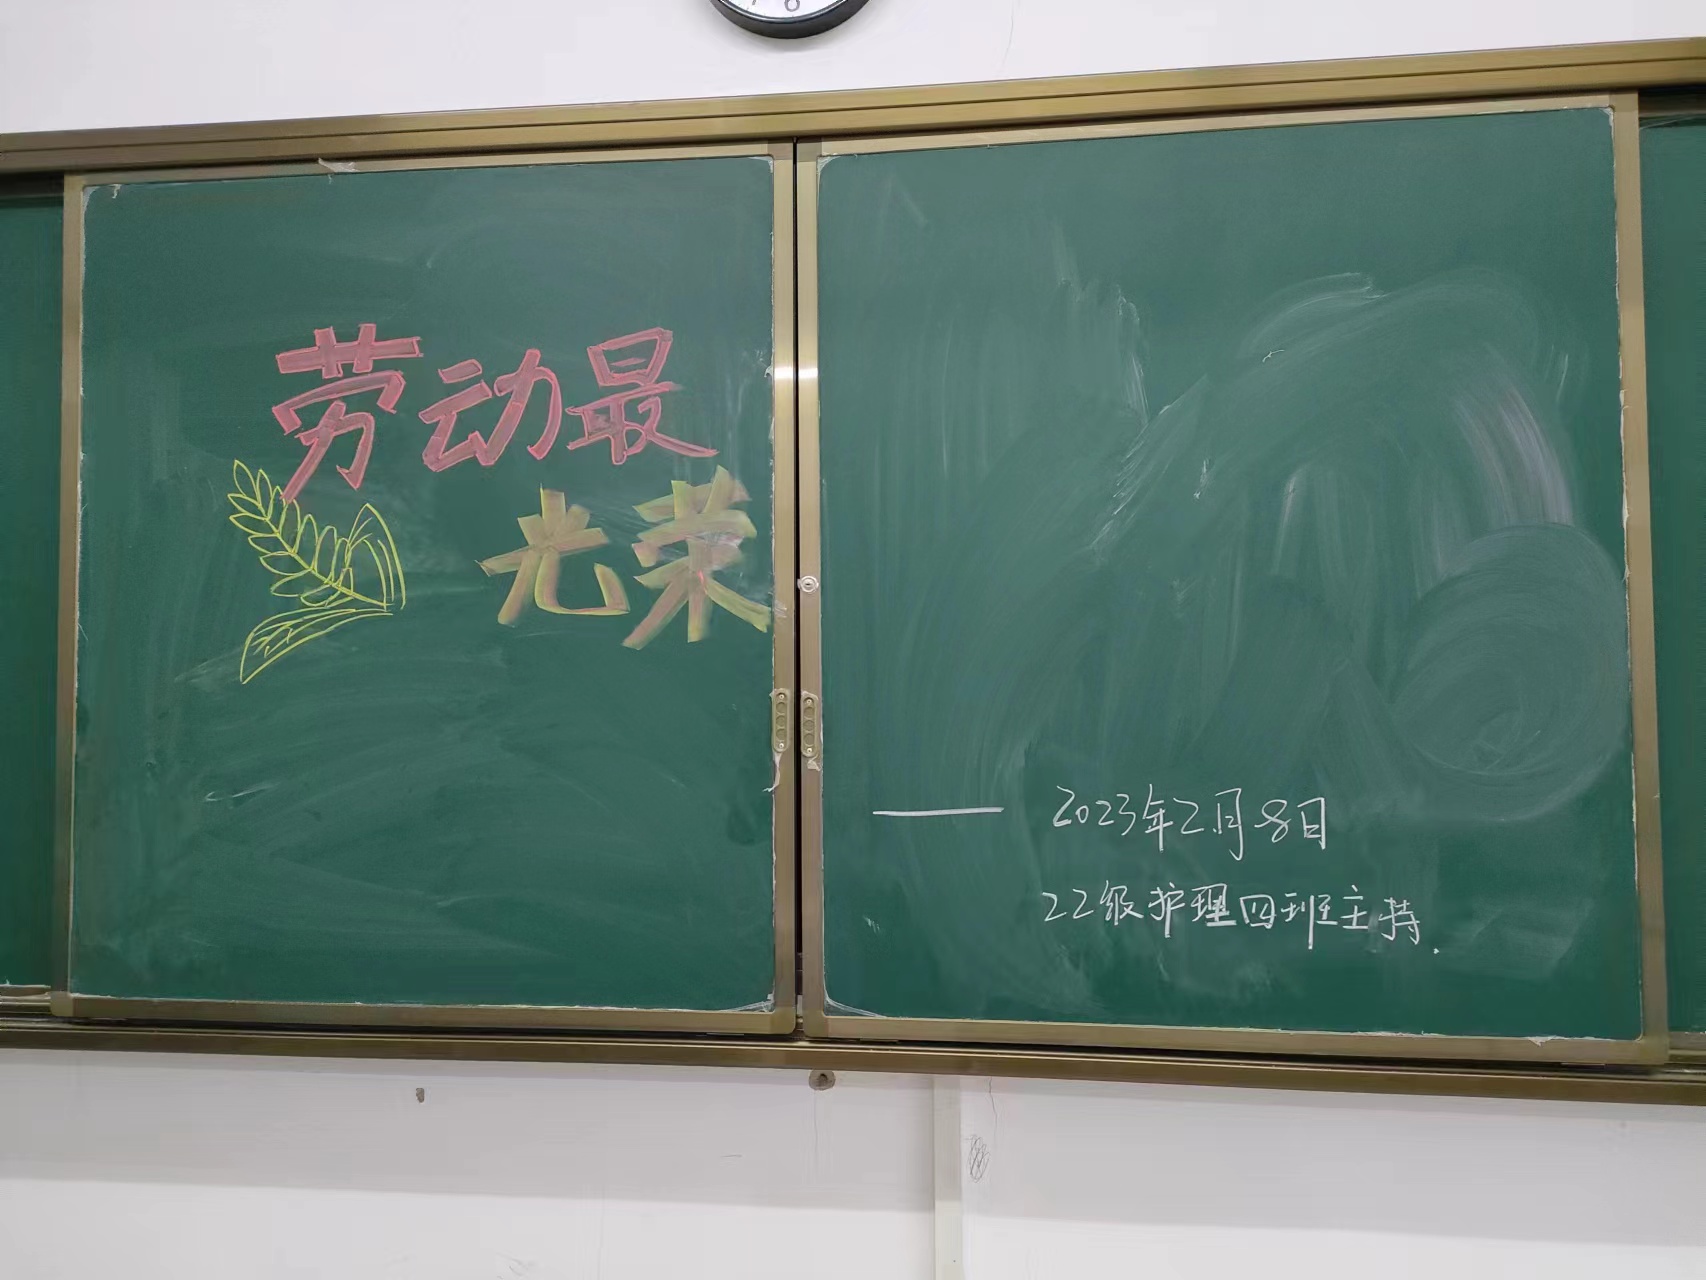 劳动最
光荣
—— 2023年2月8日
22级护理四班主持.